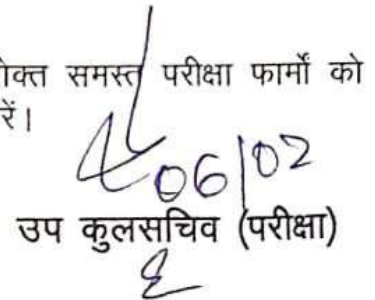 ोक्त समस्त परीक्षा फार्मों को
रें।
06/02
उप कुलसचिव (परीक्षा)